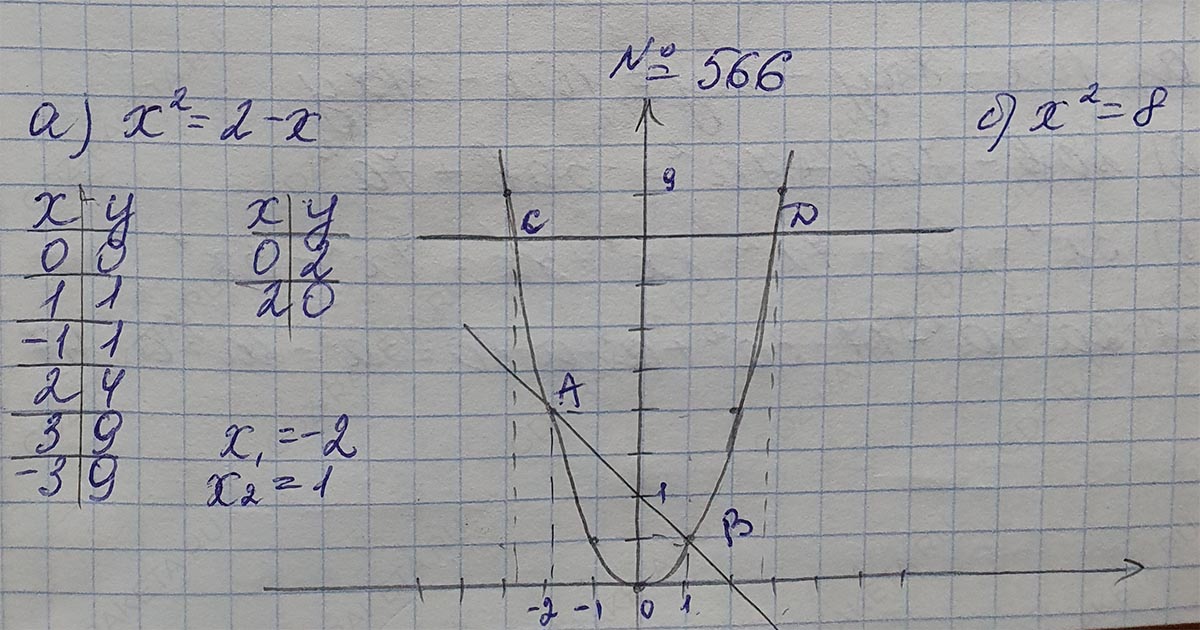 № 566
а) x² = 2 - x
б) x² = 8
x | y
0 | 0
1 | 1
-1 | 1
2 | 4
3 | 9
-3 | 9
x | y
0 | 2
2 | 0
x₁ = -2
x₂ = 1
9
C
D
A
1
B
-2 -1 0 1